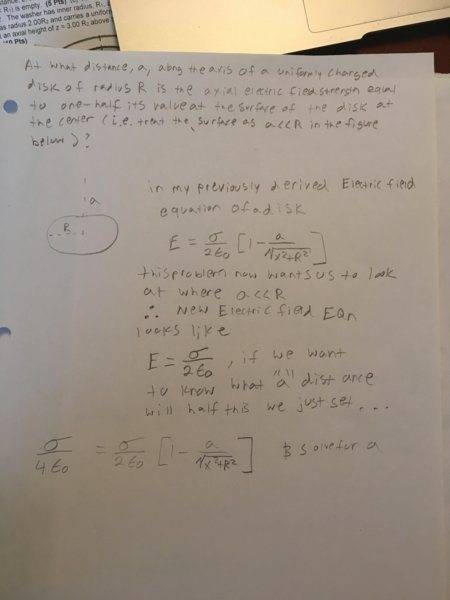 R₁) is empty. (5 Pts)
. The washer has inner radius, R₁,
as radius 2.00R₂ and carries a uniform
an axial height of z = 3.00 R₂ above
(10 Pts)
At what distance, a, along the axis of a uniformly charged
disk of radius R is the axial electric field strength equal
to one-half its value at the surface of the disk at
the center (i.e. treat the surface as a<<R in the figure
below)?
a
R
in my previously derived Electric field
equation of a disk
E = σ/2ε₀ [1 - a/√(x²+R²)]
this problem now wants us to look
at where a<<R
∴ New Electric field EQn
looks like
E = σ/2ε₀, if we want
to know what "a" distance
will half this we just set...
σ/4ε₀ = σ/2ε₀ [1 - a/√(x²+R²)] & solve for a